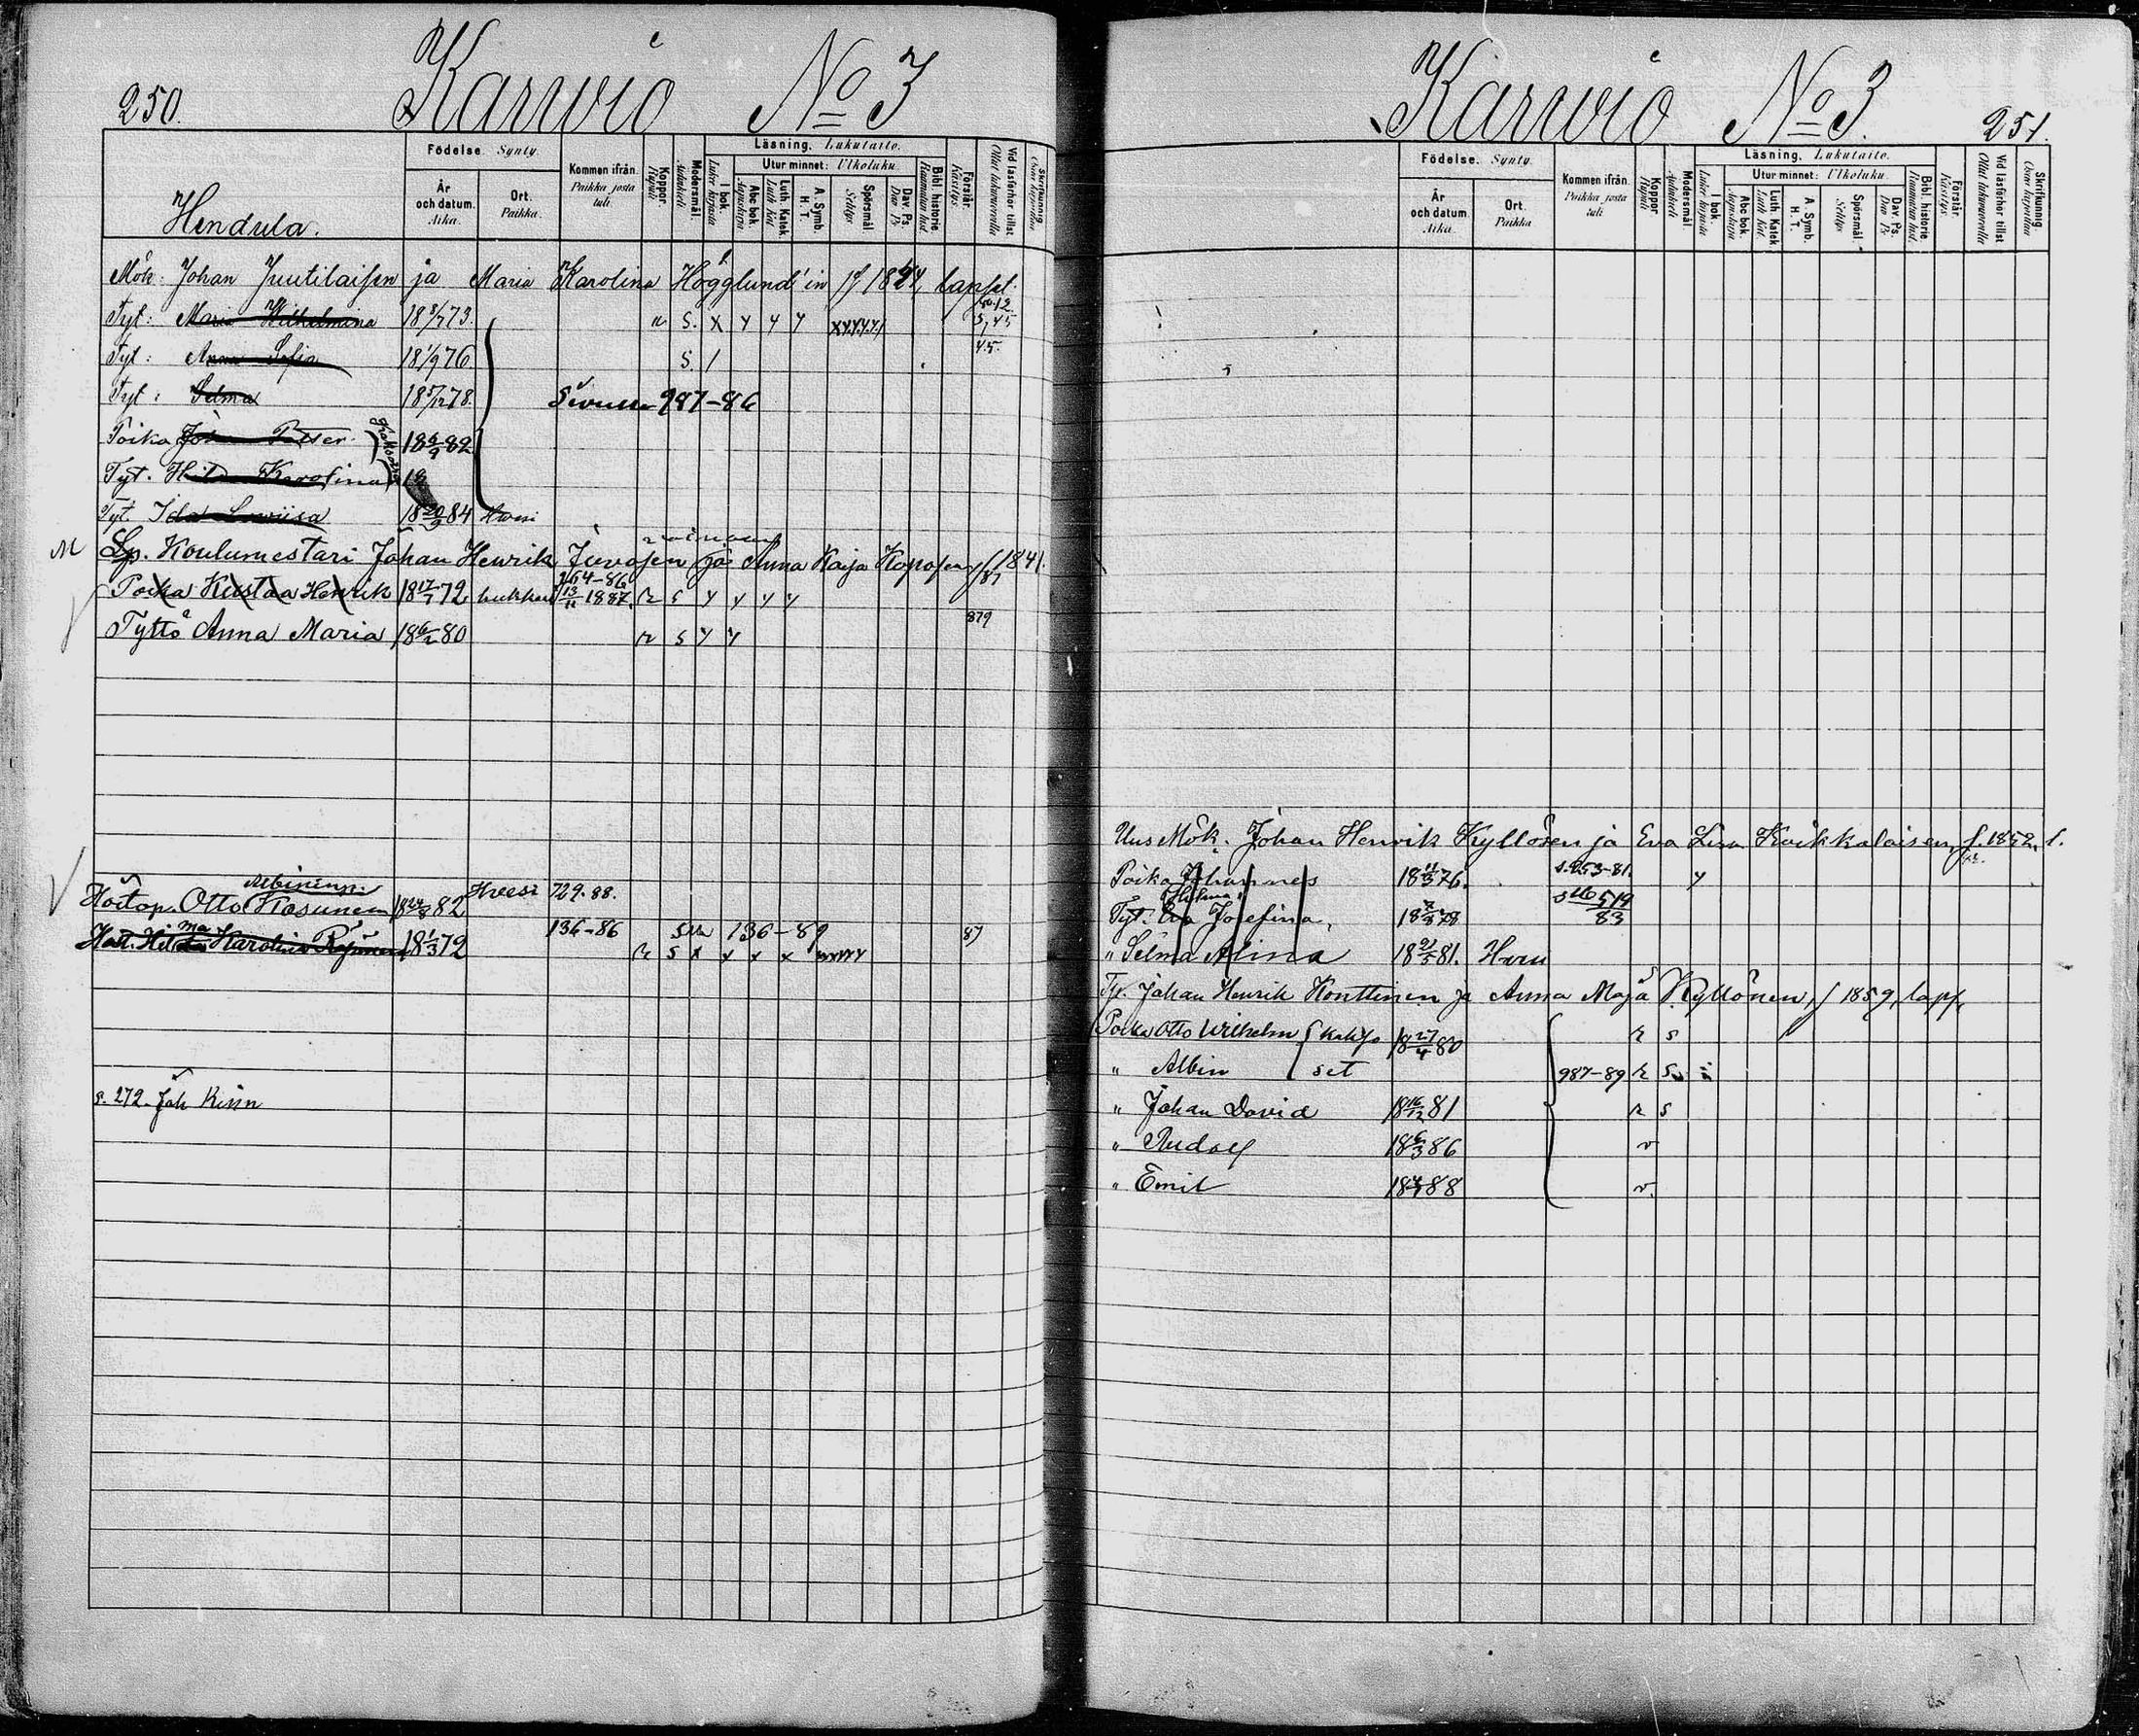 250. Karvio No 3
Födelse. Synty.
Kommen ifrån. Paikka josta tuli.
Koppor. Rupuli
Modersmål. Äidinkieli
Läsning. Lukutaito.
I bok. Lukee kirjasta
Utur minnet: Ulkoluku.
Abc bok. Aapiskirja
Luth. Katek. Luth. Kat.
A. Symb. H. T.
Spörsmål Selitys
Dav. Ps. Dav. Ps.
Bibl. historie Raamatun hist.
Förstår. Käsitys.
Vid läsförhör tillst Ollut lukuvuorolla
Skrifkunnig. Osaa kirjoittaa
År och datum. Aika.
Ort. Paikka.
Hindula.
Mök: Johan Juutilaisen ja Maria Karolina Högglund'in f 1844, lapset.
Tyt: Maria Wilhelmina 18 73. S. X Y Y Y 5,45
Tyt: Anna Sofia 18 1/9 76 S. / 45.
Tyt: Selma 18 5/12 78. Sivulle 987-86
Poika Petter 18 82
Tyt. Hilda Karolina
Tyt. Ida Loviisa 18 20/9 84
Lp. Koulumestari Johan Henrik ja Anna Kaija Koposen f 1841.
Poika Kustaa Henrik 18 17/7 72 hukkui 13/11 1887. r s y y y y 87
264-86
Tyttö Anna Maria 18 6/2 80 r s y y 879
Albininp.
Hoitop. Otto Kosunen 18 24/8 82 729.88.
Hilma Karolina 18 1/3 72 136-86 siv 136-89 87
r s x x x x
s. 272. Joh
Karvio No 3. 251.
Födelse. Synty.
Kommen ifrån. Paikka josta tuli.
Koppor Rupuli
Modersmål Äidinkieli
Läsning. Lukutaito.
I bok. Lukee kirjasta
Utur minnet: Ulkoluku.
Abc bok. Aapiskirja
Luth. Katek. Luth. Kat.
A. Symb. H. T.
Spörsmål Selitys
Dav. Ps. Dav. Ps.
Bibl. historie Raamatun hist.
Förstår. Käsitys.
Vid läsförhör tillst Ollut lukuvuorolla
Skrifkunnig. Osaa kirjoittaa
År och datum. Aika.
Ort. Paikka
Uus Mök. Johan Henrik Kyllösen ja Eva Lisa Kaikkalaisen f. 1852. l.
Poika Johannes 18 11/3 76. s. 253-81. y
Helena
Tyt. Eva Josefina, 18 78 519 83
" Selma Alina 18 21/5 81.
Johan Henrik Konttinen ja Anna Maja Kyllönen, f 1859, laps,
Poika Otto Wilhelm kakso 18 27/4 80 r s
" Albin set 987-89 r s
" Johan David 18 16/12 81 r s
" Rudolf 18 6/3 86 v
" Emil 18 88 v.